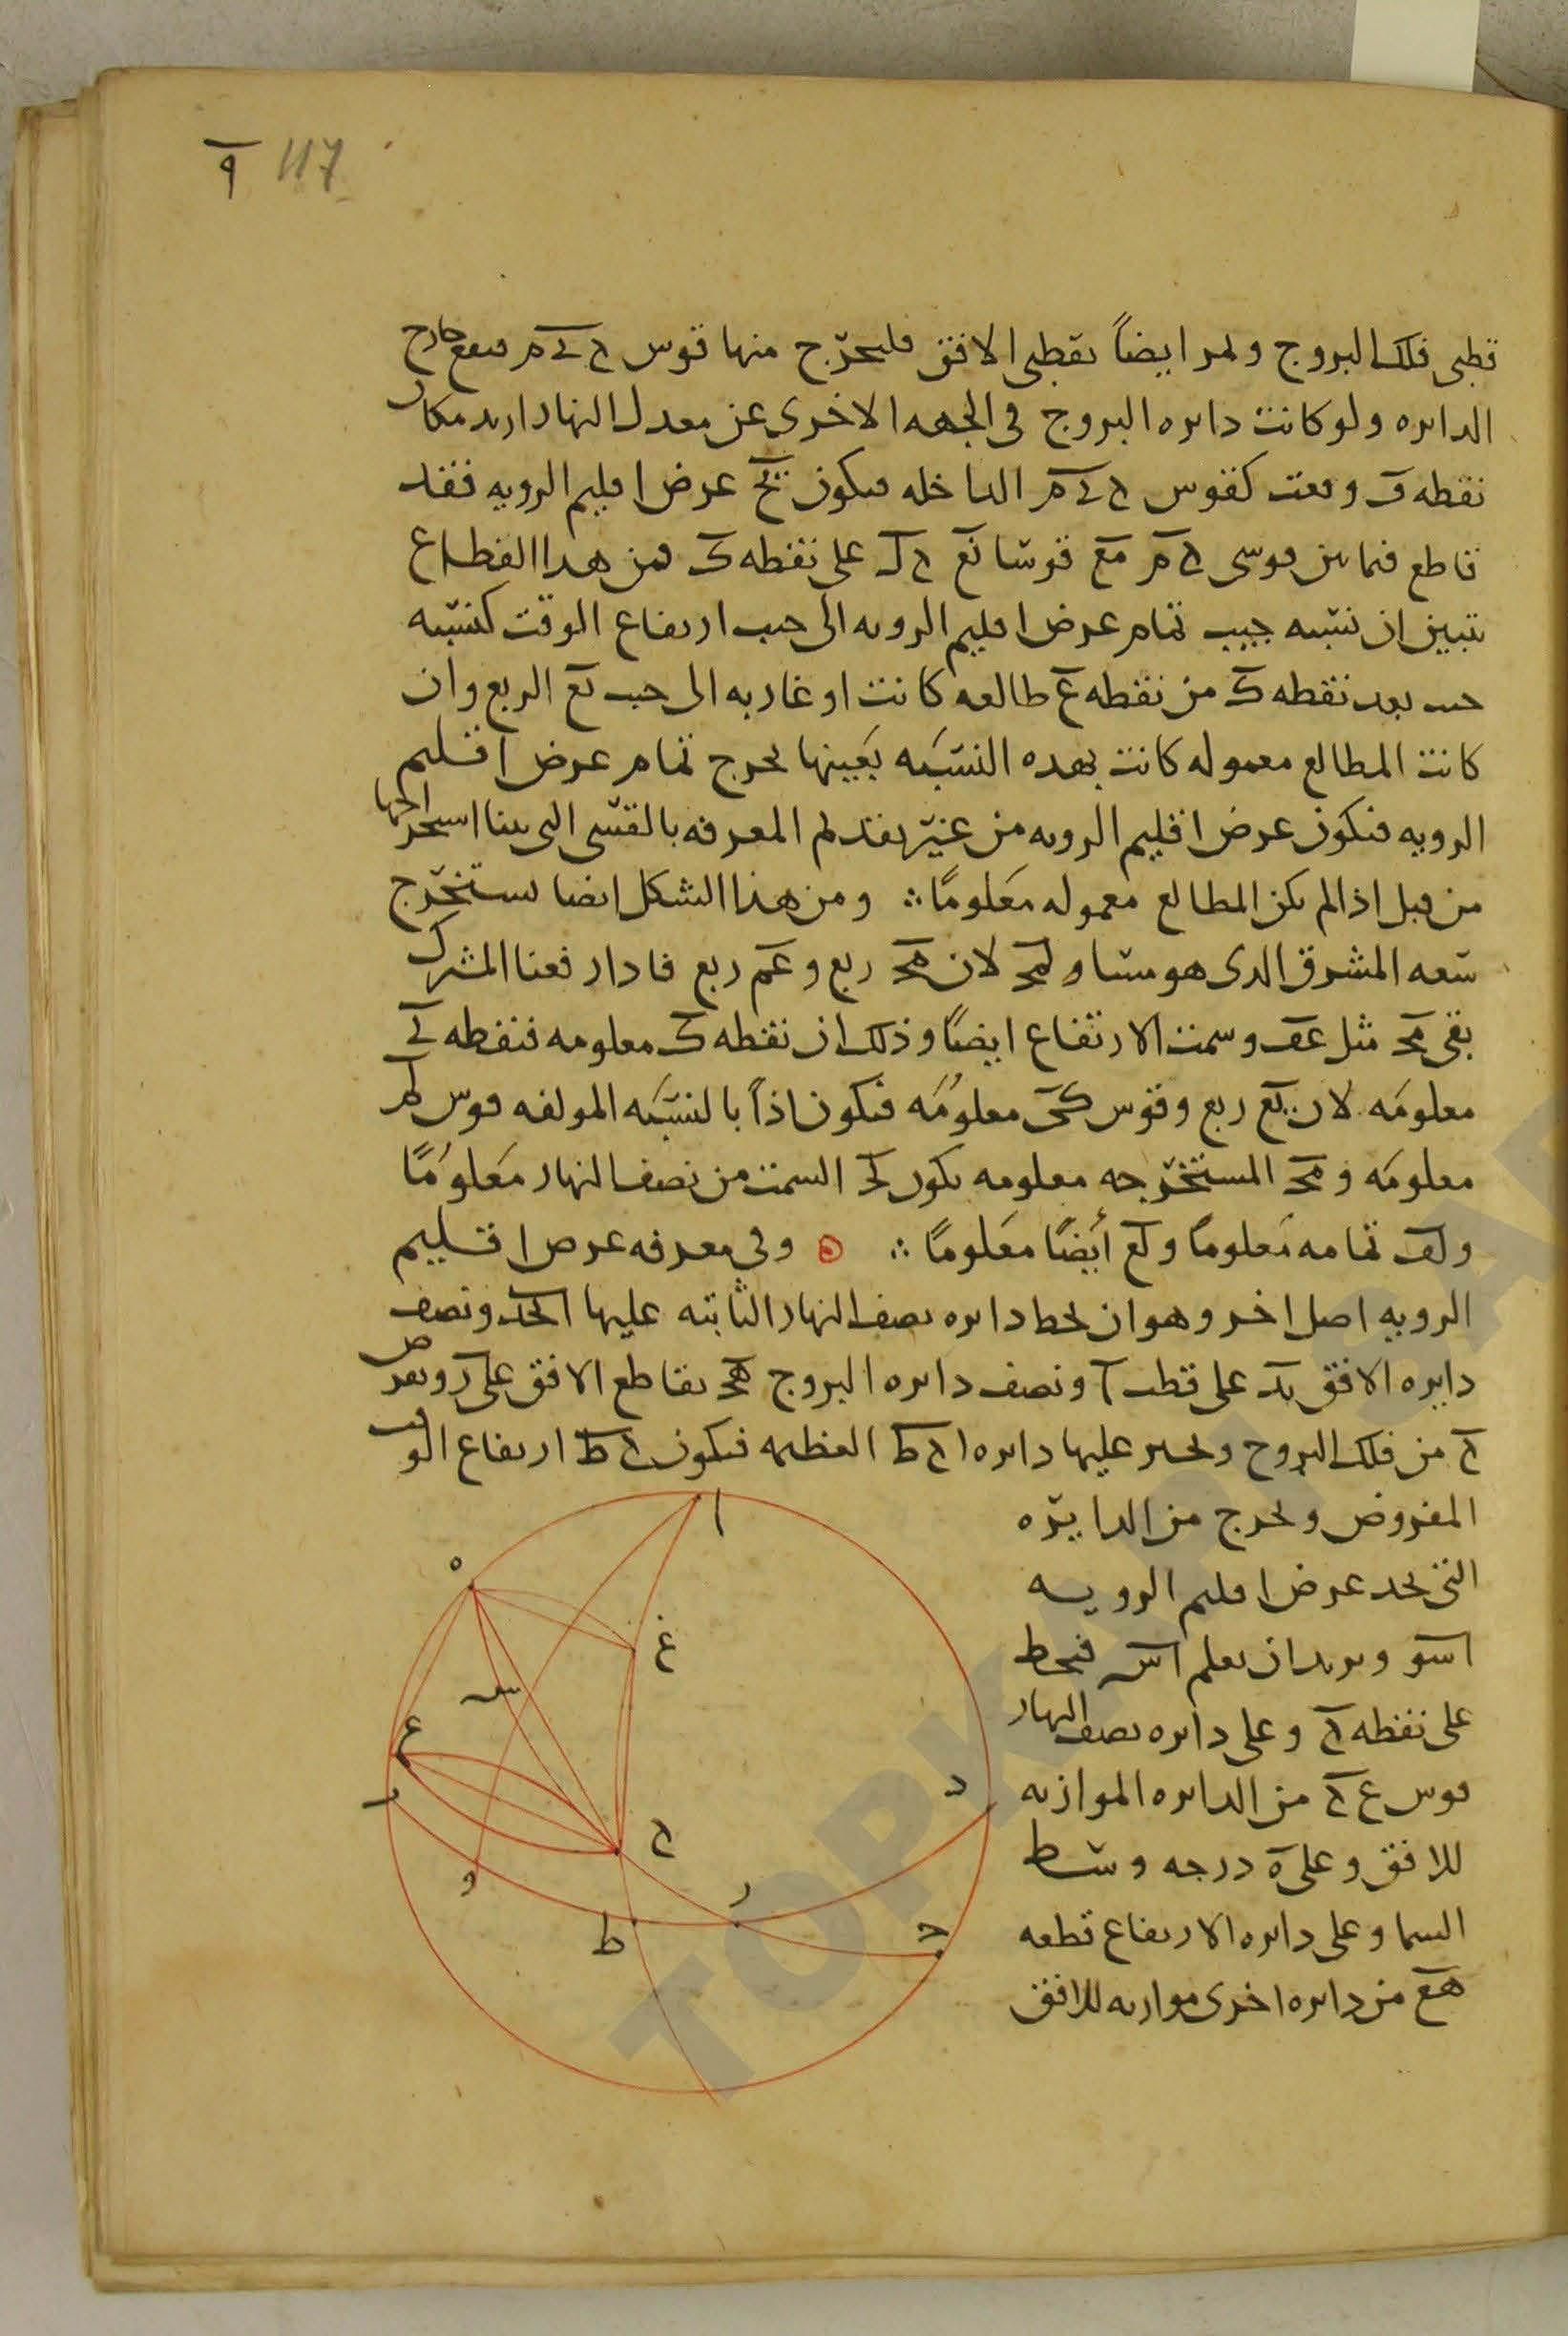 117 ٩
قطبى فلك البروج ولمر ايضاً بقطبى الافق فليخرج منها قوس ح ى م فيقع خارج
الدايره ولو كانت دايره البروج فى الجهه الاخرى عن معدل النهار اريد مكان
نقطه ف وقعت كقوس ح ى م الداخله فيكون عرض اقليم الرويه فقد
تقاطع فيما بين قوسى ح م مع قوسا ح ل على نقطه ك فمن هذا القطاع
يتبين ان نسبه جيب تمام عرض اقليم الرويه الى جيب ارتفاع الوقت كنسبه
جيب بعد نقطه ك من نقطه ع طالعه كانت او غاربه الى جيب الربع وان
كانت المطالع معموله كانت بهده النسبه بعينها يخرج تمام عرض اقليم
الرويه فيكون عرض اقليم الرويه من غير تقدم المعرفه بالقسى التى بينا استخراجها
من قبل اذا لم يكن المطالع معموله معلومًا ∴ ومن هذا الشكل ايضا يستخرج
سعه المشرق الدى هو مساو لان ربع و عم ربع فادا رفعنا المشترك
بقى مثل عف وسمت الارتفاع ايضًا وذلك ان نقطه ك معلومه فنقطه ى
معلومه لان يع ربع وقوس كح معلومه فيكون اذاً بالنسبه المولفه قوس
معلومه و المستخرجه معلومه يكون السمت من نصف النهار معلومًا
و تمامه معلومًا و أيضًا معلومًا ∴ ه وفى معرفه عرض اقليم
الرويه اصل اخر وهو ان نخط دايره نصف النهار الثابته عليها ونصف
دايره الافق بد على قطب ا ونصف دايره البروج يقاطع الافق على ر ونفرض
ح من فلك البروج ونجيز عليها دايره ا ح ط العظيمه فيكون ح ط ارتفاع الوقت
المفروض ونخرج من الدايره
التى تحد عرض اقليم الرويه
اسو ونريد ان نعلم اس فنخط
على نقطه ح وعلى دايره نصف النهار
قوس ع ح من الدايره الموازيه
للافق وعلى ه درجه وسط
السما وعلى دايره الارتفاع قطعه
من دايره اخرى موازيه للافق
ا
ه
غ
س
ع
ب
ح
د
و
ر
ط
ج
TOPKAPI SARAYI